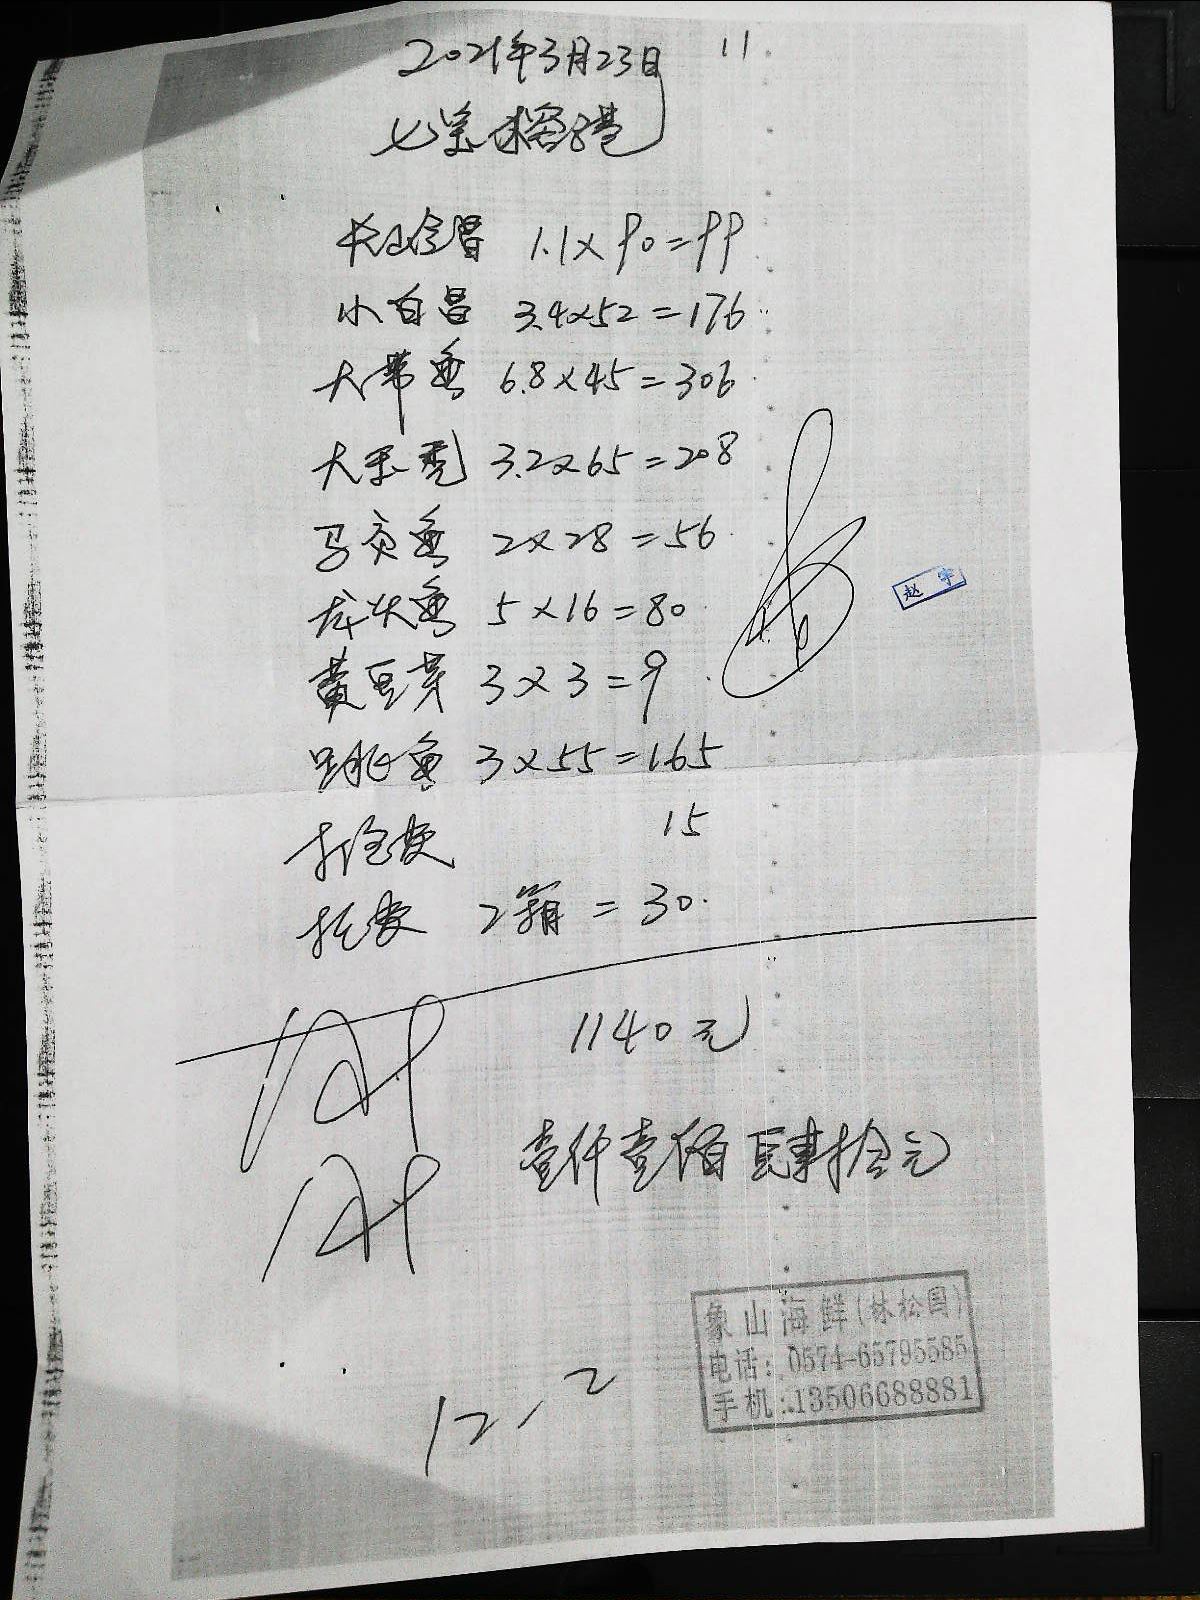 2021年3月23日 11
小白昌 3.4×52=176
大带鱼 6.8×45=306
大玉秃 3.2×65=208
马交鱼 2×28=56
龙头鱼 5×16=80
黄豆芽 3×3=9
跳鱼 3×55=165
15
2箱=30
1140元
壹仟壹佰肆拾元
赵宇
象山海鲜(林松昌)
电话:0574-65795585
手机:13506688881
12,2